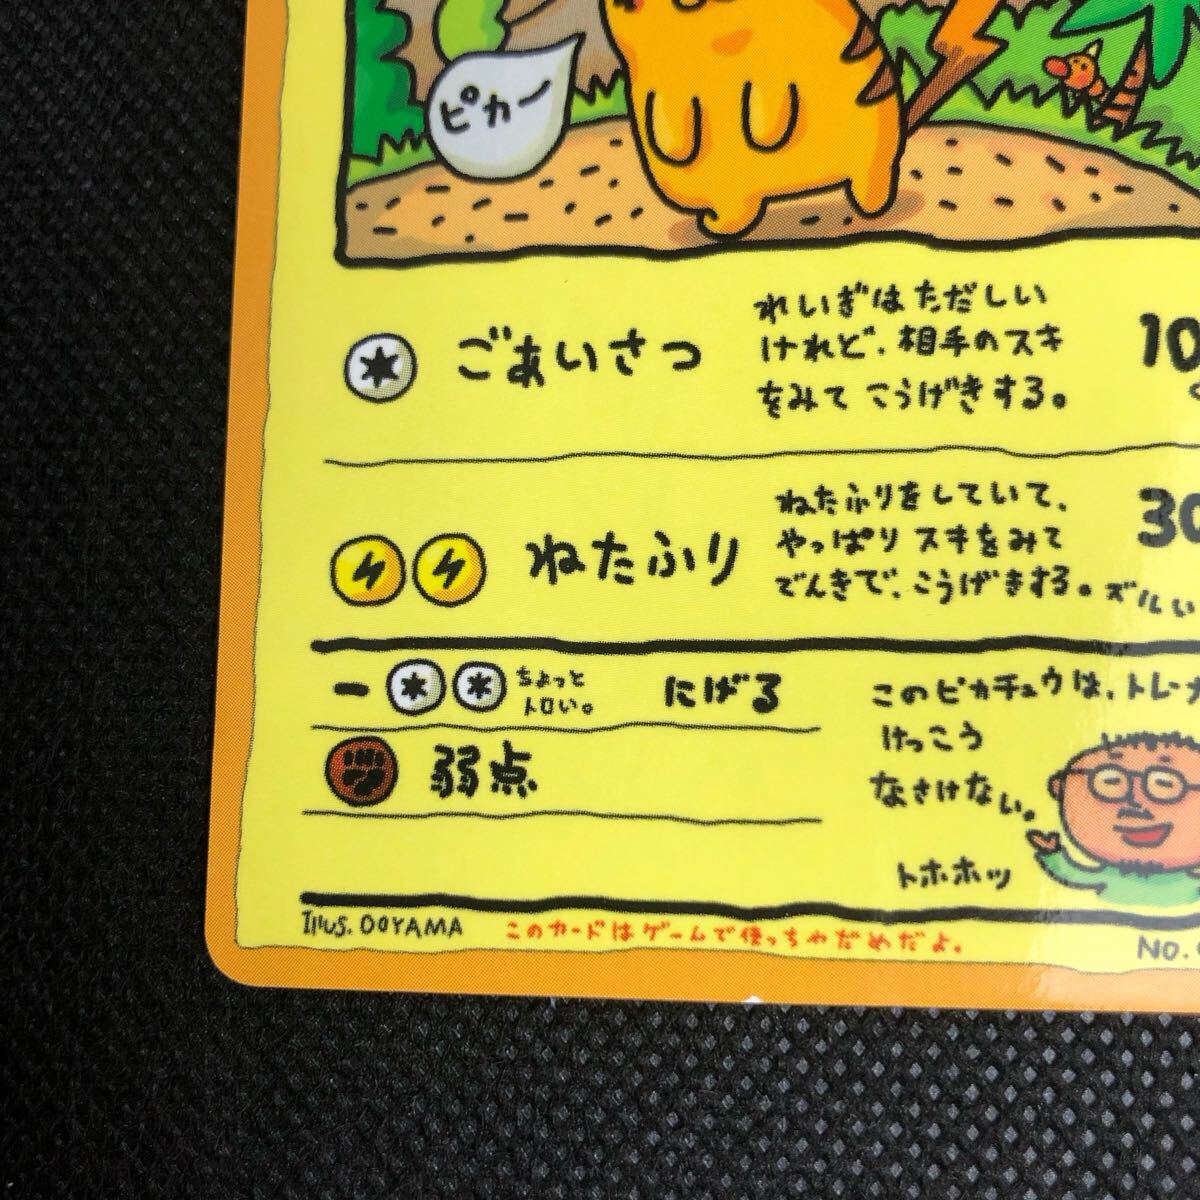 ピカー
ごあいさつ
れいぎは ただしい
けれど、相手のスキ
をみて こうげきする。
10
ねたふり
ねたふりをしていて、
やっぱり スキをみて
でんきで、こうげきする。ズルい
30
ー
ちょっと
トロい。
にげる
弱点
このピカチュウは、トレーナ
けっこう
なさけない。
トホホッ
Illus. OOYAMA
このカードはゲームで使っちゃだめだよ。
NO.